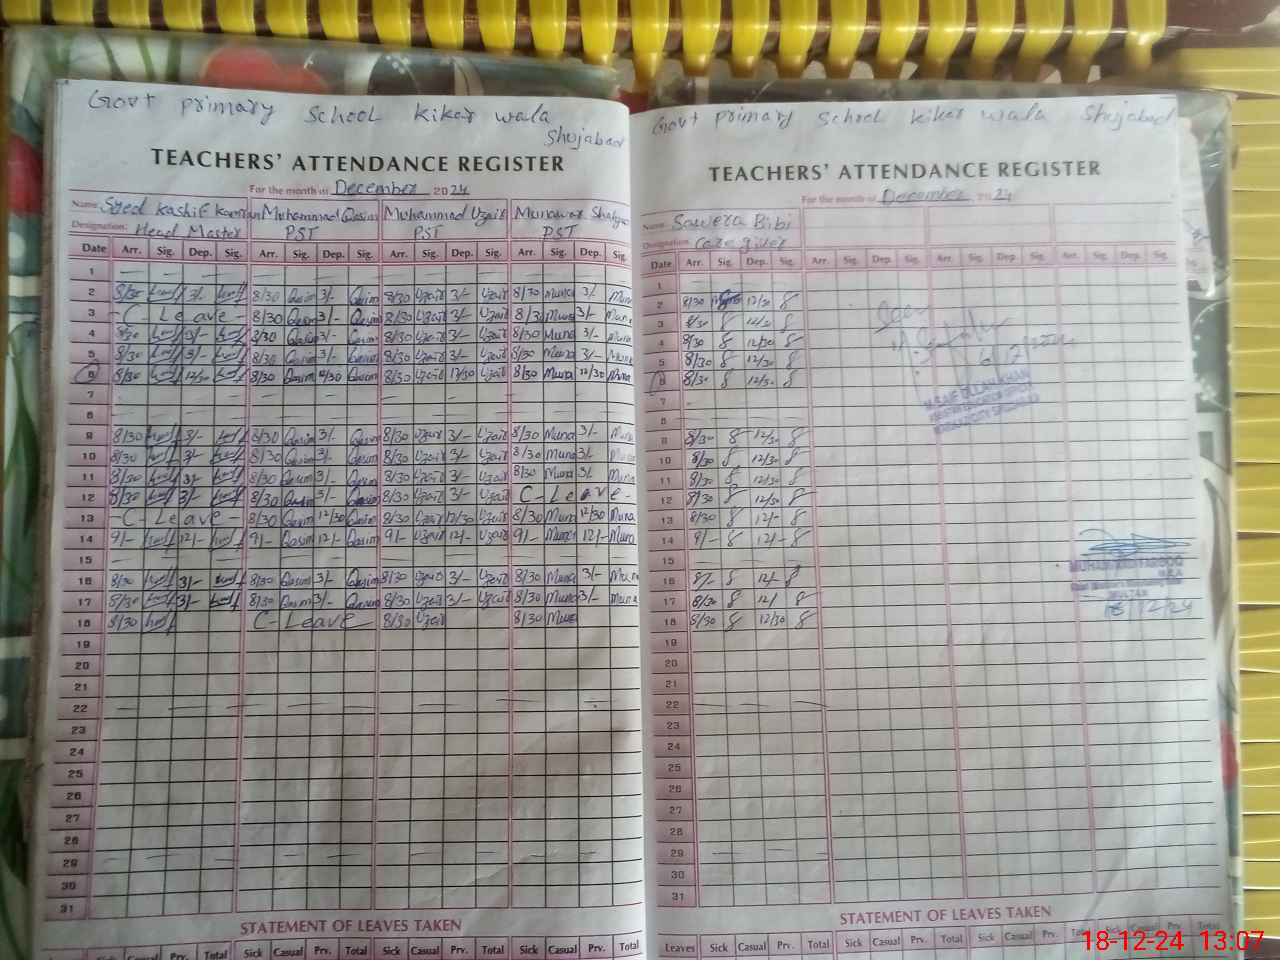 Govt primary School Kikar wala
Shujabad
TEACHERS' ATTENDANCE REGISTER
For the month of December 2024
Name Syed Kashif Muhammad Qasim Muhammad Uzair Munawar
Designation: Head Master PST PST PST
Date Arr. Sig. Dep. Sig. Arr. Sig. Dep. Sig. Arr. Sig. Dep. Sig. Arr. Sig. Dep. Sig.
1
2 8/30 3/- 8/30 Qasim 3/- Qasim 8/30 Uzair 3/- Uzair 8/30 Muna 3/- Muna
3 -C-Leave- 8/30 Qasim 3/- Qasim 8/30 Uzair 3/- Uzair 8/30 Muna 3/- Muna
4 8/30 3/- 8/30 Qasim 3/- Qasim 8/30 Uzair 3/- Uzair 8/30 Muna 3/- Muna
5 8/30 3/- 8/30 Qasim 3/- Qasim 8/30 Uzair 3/- Uzair 8/30 Muna 3/- Muna
6 8/30 12/30 8/30 Qasim 12/30 Qasim 8/30 Uzair 12/30 Uzair 8/30 Muna 12/30 Muna
7
8
9 8/30 3/- 8/30 Qasim 3/- Qasim 8/30 Uzair 3/- Uzair 8/30 Muna 3/- Muna
10 8/30 3/- 8/30 Qasim 3/- Qasim 8/30 Uzair 3/- Uzair 8/30 Muna 3/- Muna
11 8/30 3/- 8/30 Qasim 3/- Qasim 8/30 Uzair 3/- Uzair 8/30 Muna 3/- Muna
12 8/30 3/- 8/30 Qasim 3/- Qasim 8/30 Uzair 3/- Uzair C-Leave-
13 -C-Leave- 8/30 Qasim 12/30 Qasim 8/30 Uzair 12/30 Uzair 8/30 Muna 12/30 Muna
14 9/- 12/- 9/- Qasim 12/- Qasim 9/- Uzair 12/- Uzair 9/- Muna 12/- Muna
15
16 8/30 3/- 8/30 Qasim 3/- Qasim 8/30 Uzair 3/- Uzair 8/30 Muna 3/- Muna
17 8/30 3/- 8/30 Qasim 3/- Qasim 8/30 Uzair 3/- Uzair 8/30 Muna 3/- Muna
18 8/30 C-Leave 8/30 Uzair 8/30 Muna
19
20
21
22
23
24
25
26
27
28
29
30
31
STATEMENT OF LEAVES TAKEN
Sick Casual Prv. Total Sick Casual Prv. Total Sick Casual Prv. Total
Govt primary School Kikar wala Shujabad
TEACHERS' ATTENDANCE REGISTER
For the month of December 2024
Name Sawera Bibi
Designation: Care giver
Date Arr. Sig. Dep. Sig. Arr. Sig. Dep. Sig. Arr. Sig. Dep. Sig. Arr. Sig. Dep. Sig.
1
2 8/30 12/30
3 8/30 12/30
4 8/30 12/30
5 8/30 12/30
6 8/30 12/30
7
8
9 8/30 12/30
10 8/30 12/30
11 8/30 12/30
12 8/30 12/30
13 8/30 12/-
14 9/- 12/-
15
16 8/- 12/-
17 8/30 12/
18 8/30 12/30
19
20
21
22
23
24
25
26
27
28
29
30
31
6/12/2024
MULTAN
18/12/24
STATEMENT OF LEAVES TAKEN
Leaves Sick Casual Prv. Total Sick Casual Prv. Total Sick Casual Prv. Total Sick Casual Prv. Total
18-12-24 13:07